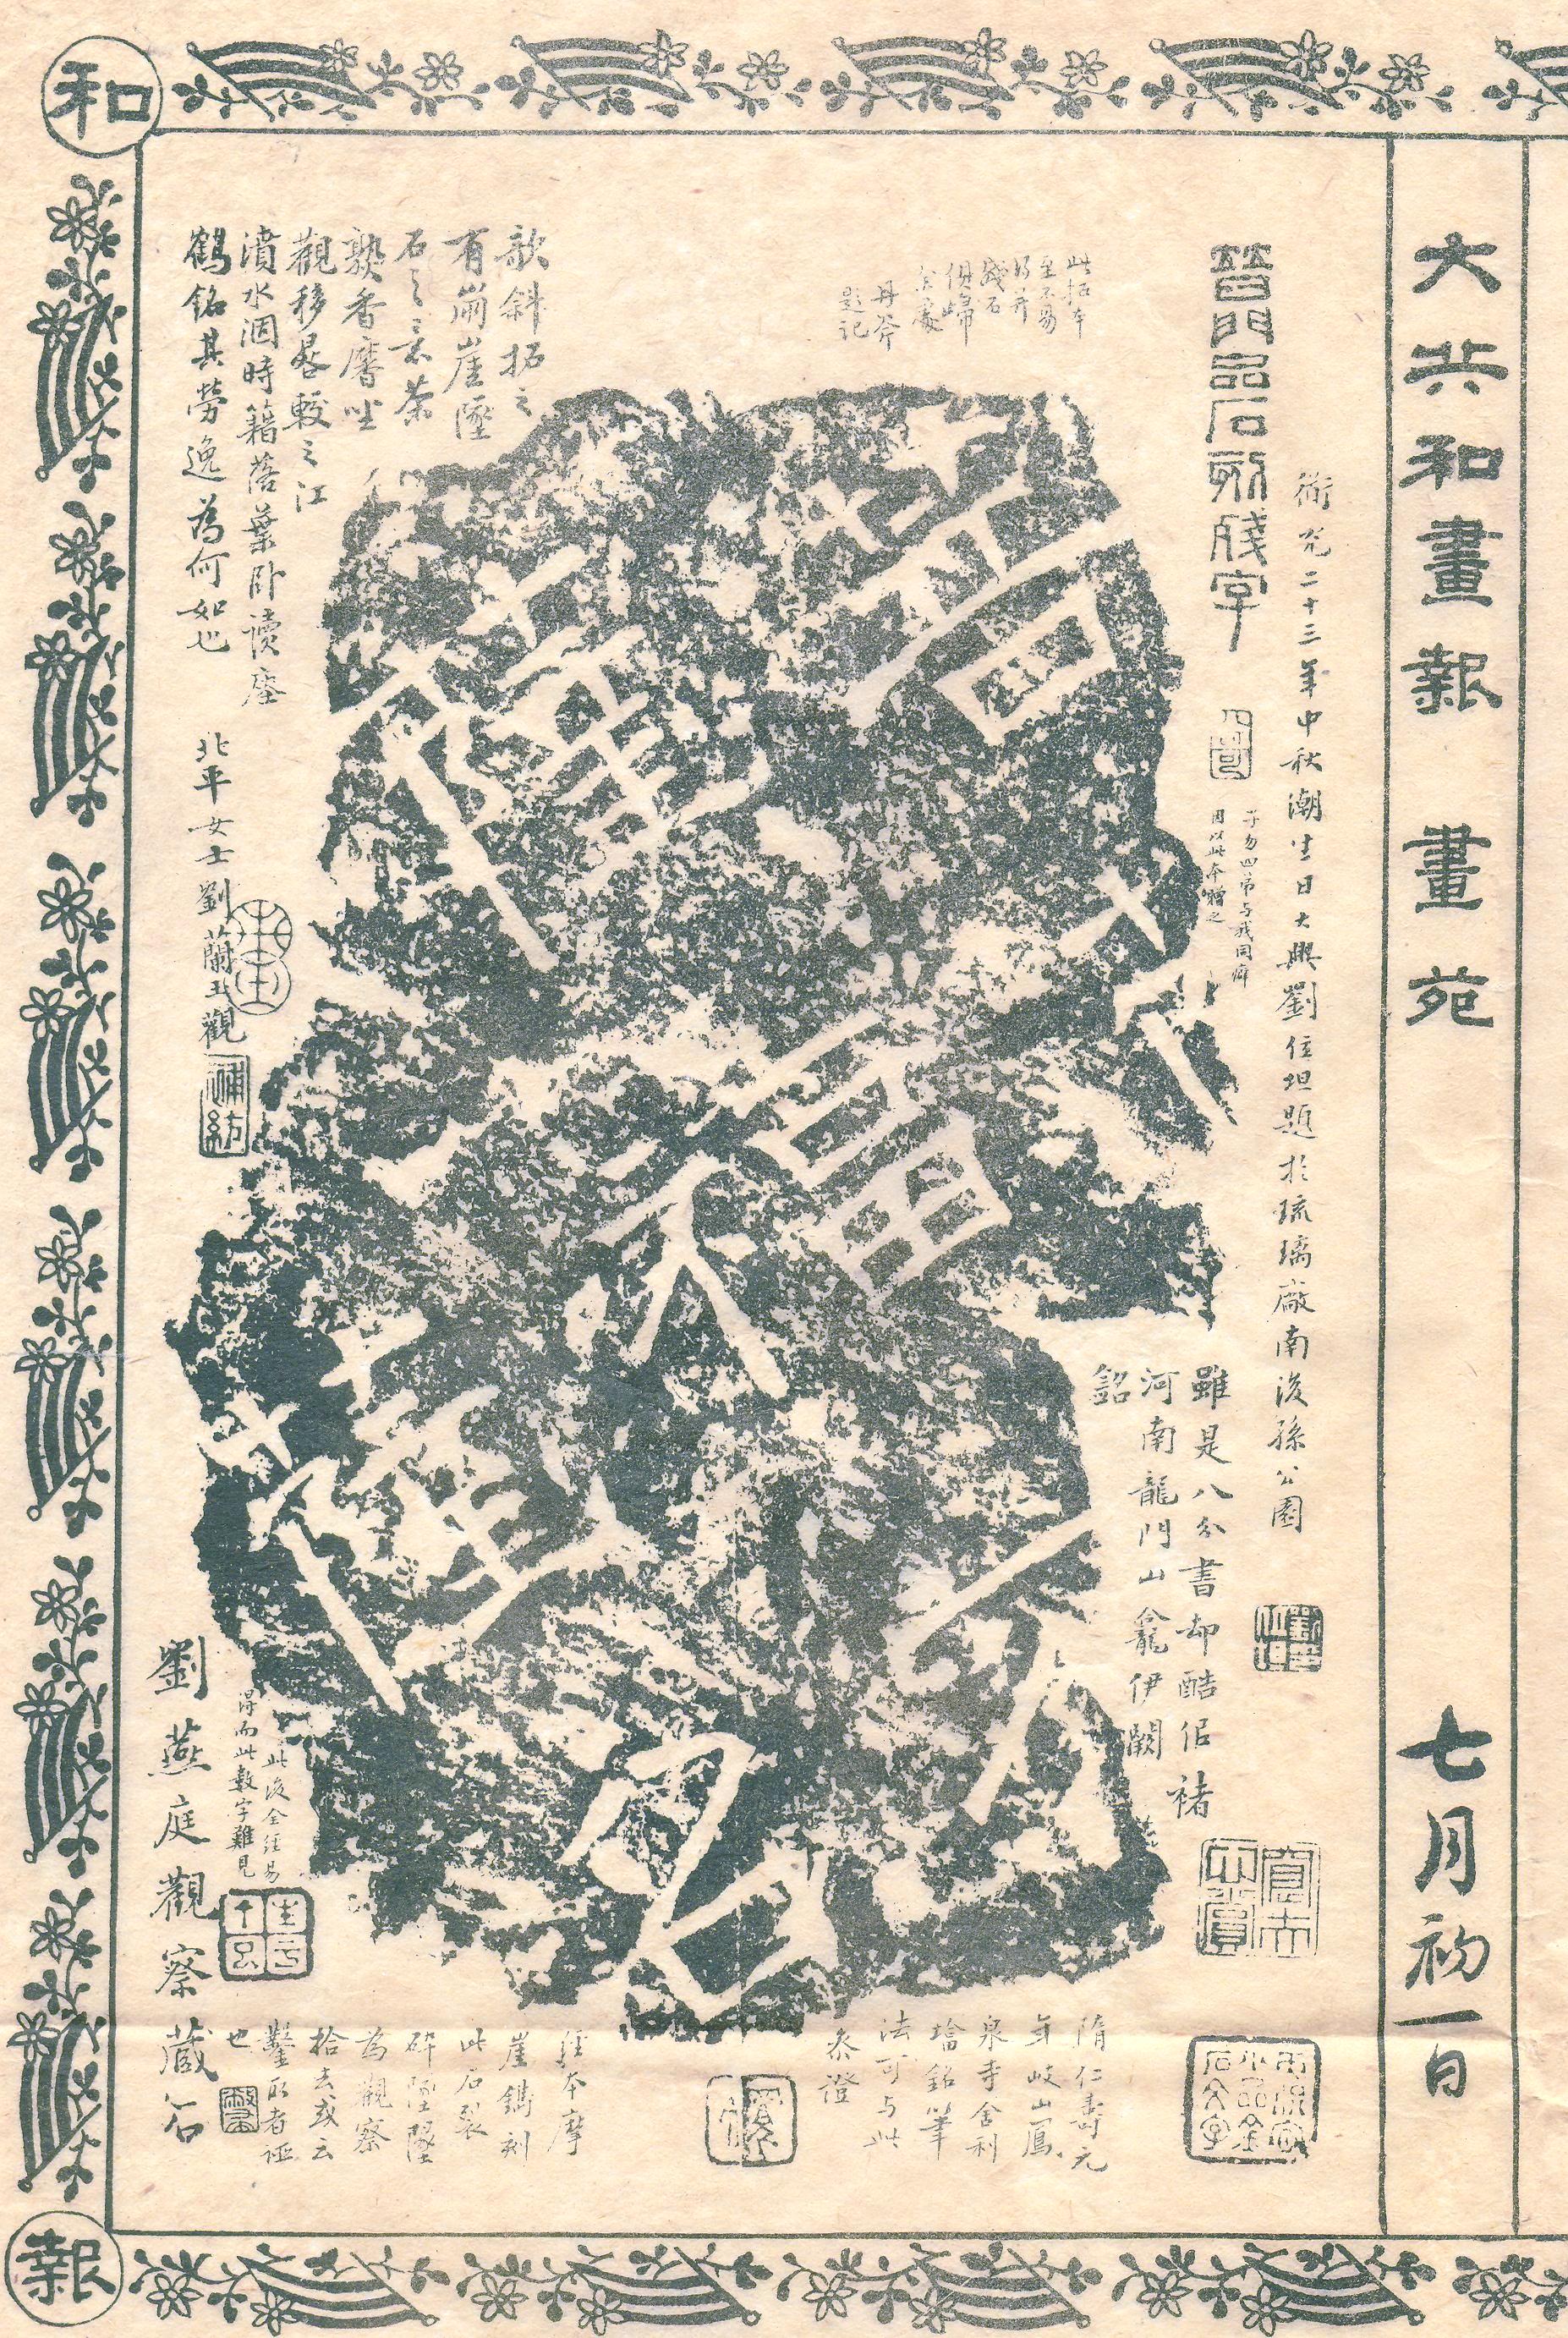 大共和畫報 畫苑 七月初一日
和
報
晉門品石刻殘字
衜光二十三年中秋潮生日大興劉位坦題於琉璃廠南後孫公園
子勿四弟与我同癖
因以此本贈之
此拓本
至不易
得并
殘石
俱歸
丹斧
題記
雖是八分書却酷佀褚
河南龍門山龕伊闕
銘
欹斜拓之
有崩崖墜
石之意茶
熟香麐坐
觀移晷較之江
濆水涸時籍落葉卧讀座
鶴銘其勞逸為何如也
北平女士劉蘭玉觀
隋仁壽元
年岐山鳳
泉寺舍利
塔銘筆
法可与此
叅證
經本摩
崖鐫刻
此石裂
碎隊墜
為觀察
拾去或云
鑿取者诬
也
此後全經易
得而此數字難見
劉燕庭觀察藏石